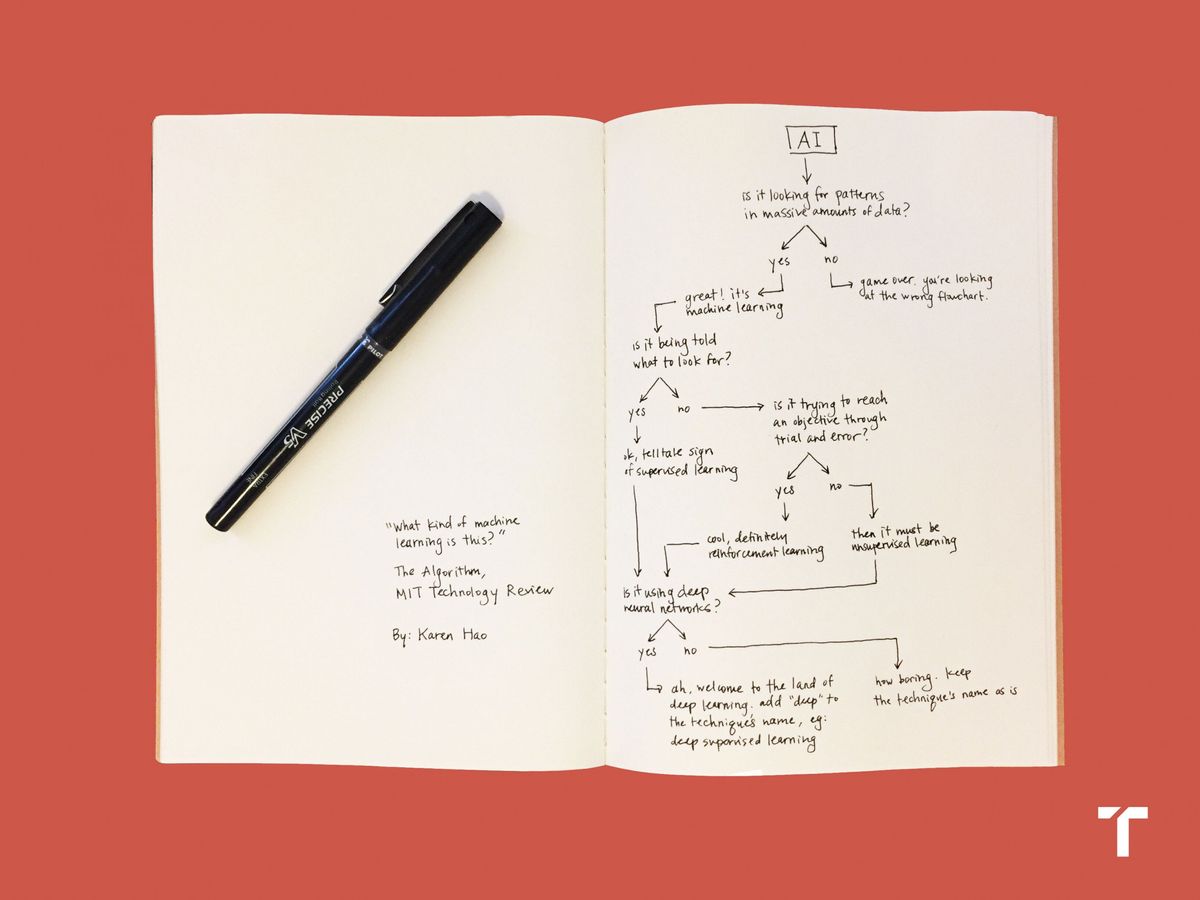 PILOT
PRECISE V5
Rolling Ball
"What kind of machine
learning is this?"
The Algorithm,
MIT Technology Review
By: Karen Hao
AI
is it looking for patterns
in massive amounts of data?
yes
no
great! it's
machine learning
game over. you're looking
at the wrong flowchart.
is it being told
what to look for?
yes
no
is it trying to reach
an objective through
trial and error?
ok, telltale sign
of supervised learning
yes
no
cool, definitely
reinforcement learning
then it must be
unsupervised learning
Is it using deep
neural networks?
yes
no
ah, welcome to the land of
deep learning. add "deep" to
the technique's name, eg:
deep supervised learning
how boring. keep
the technique's name as is